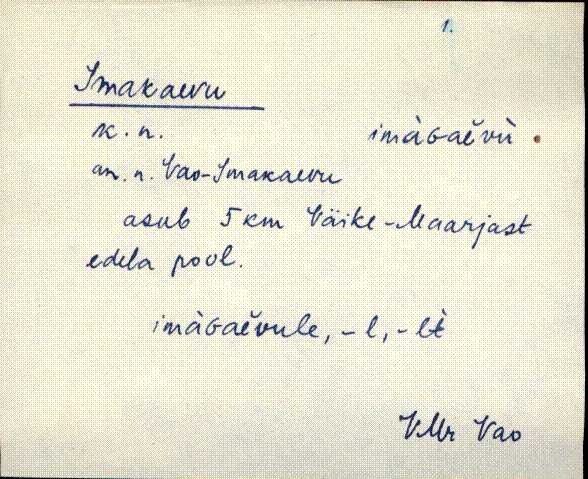 1.
Imakaevu
k. n. imàGaĕvù
an. n. Vao-Imakaevu
asub 5 km Väike-Maarjast
edela pool.
imàGaĕvule, -l, -lt̀
VMr Vao